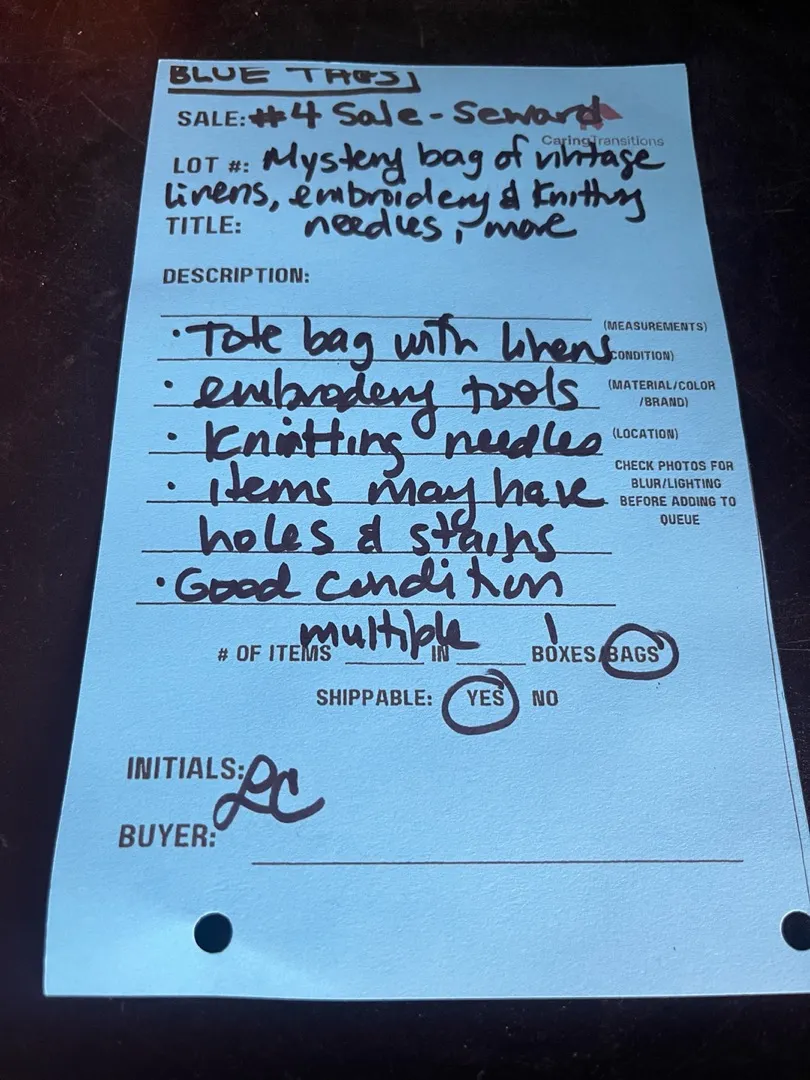 BLUE TAGS!
SALE: #4 Sale - Seward
CaringTransitions
LOT #: Mystery bag of vintage
linens, embroidery & Knitting
TITLE: needles, more
DESCRIPTION:
(MEASUREMENTS)
· Tote bag with linens
(CONDITION)
· embrodery tools
(MATERIAL/COLOR
/BRAND)
· Knitting needles
(LOCATION)
· items may have
holes & stains
CHECK PHOTOS FOR
BLUR/LIGHTING
BEFORE ADDING TO
QUEUE
· Good condition
# OF ITEMS multiple IN 1 BOXES/BAGS
SHIPPABLE: YES NO
INITIALS: LC
BUYER: